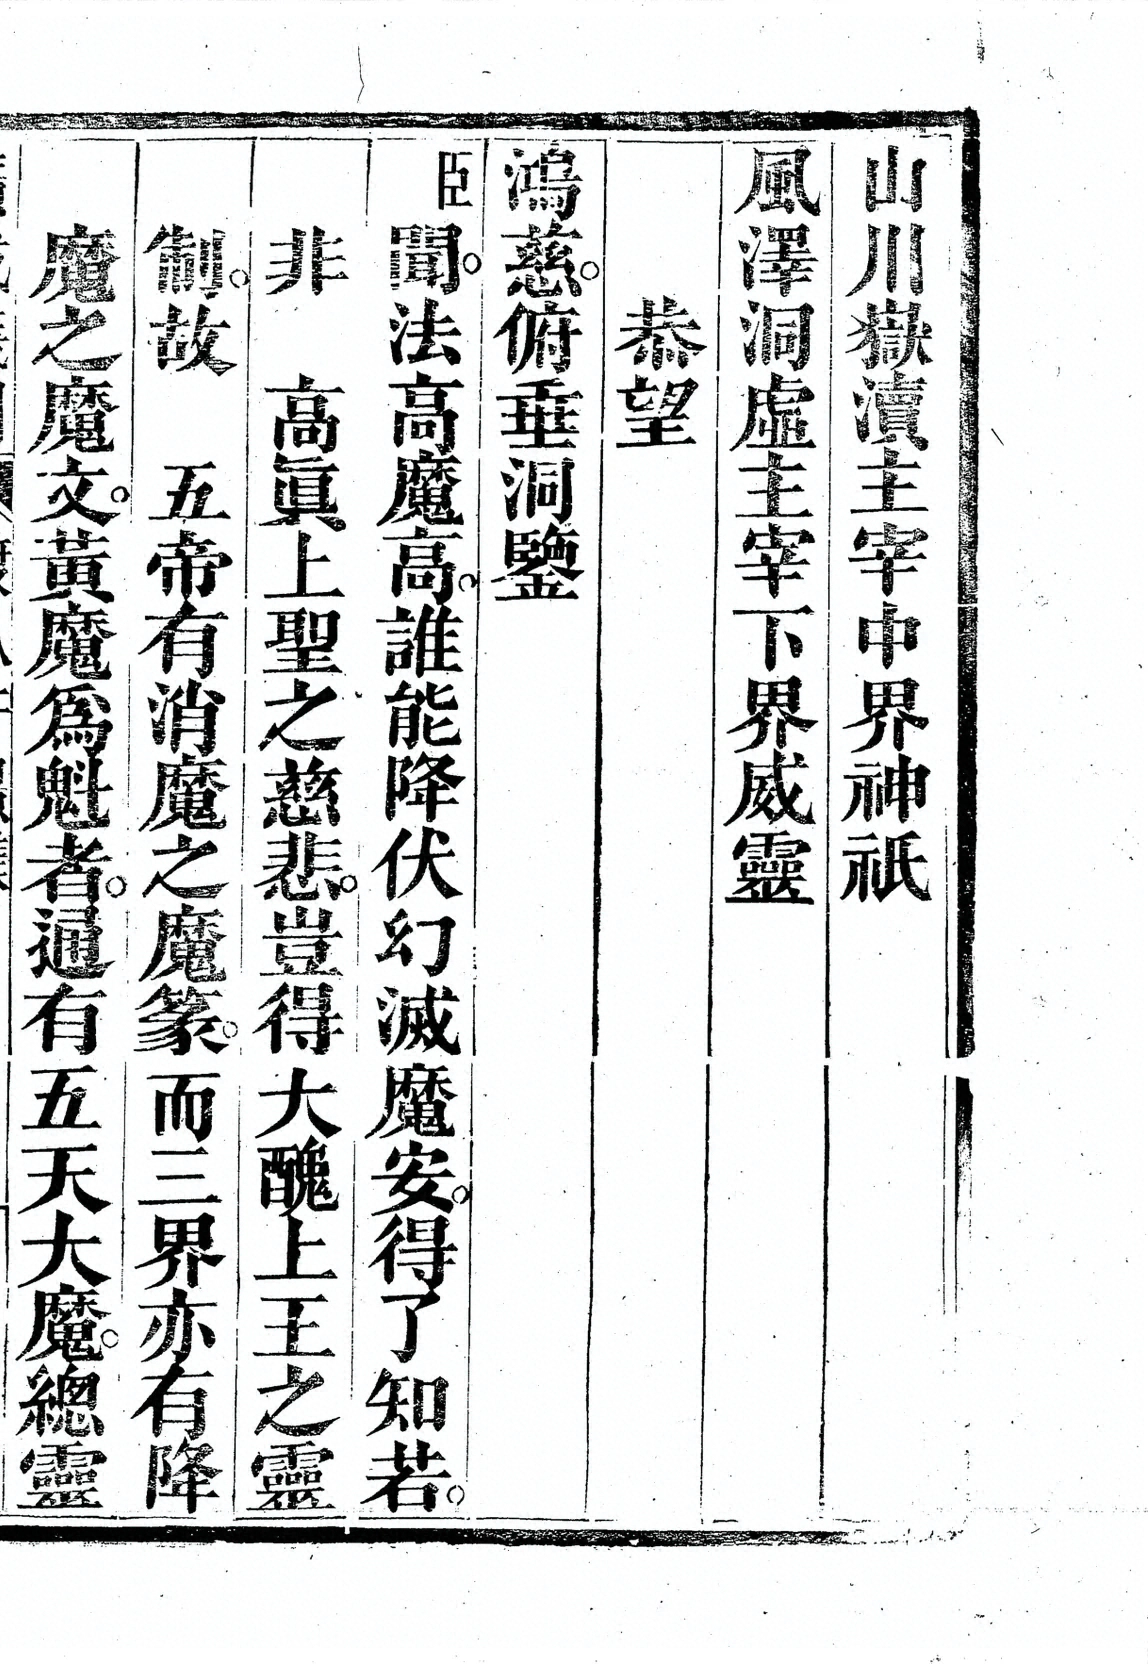 山川嶽瀆主宰中界神祇
風澤洞虛主宰下界威靈
恭望
鴻慈。俯垂洞鑒
臣聞。法高魔高。誰能降伏幻滅魔安。得了知若。
非　高眞上聖之慈悲。豈得大醜上王之靈
制。故　五帝有消魔之魔篆。而三界亦有降
魔之魔文。黃魔爲魁者。逼有五天大魔。總靈